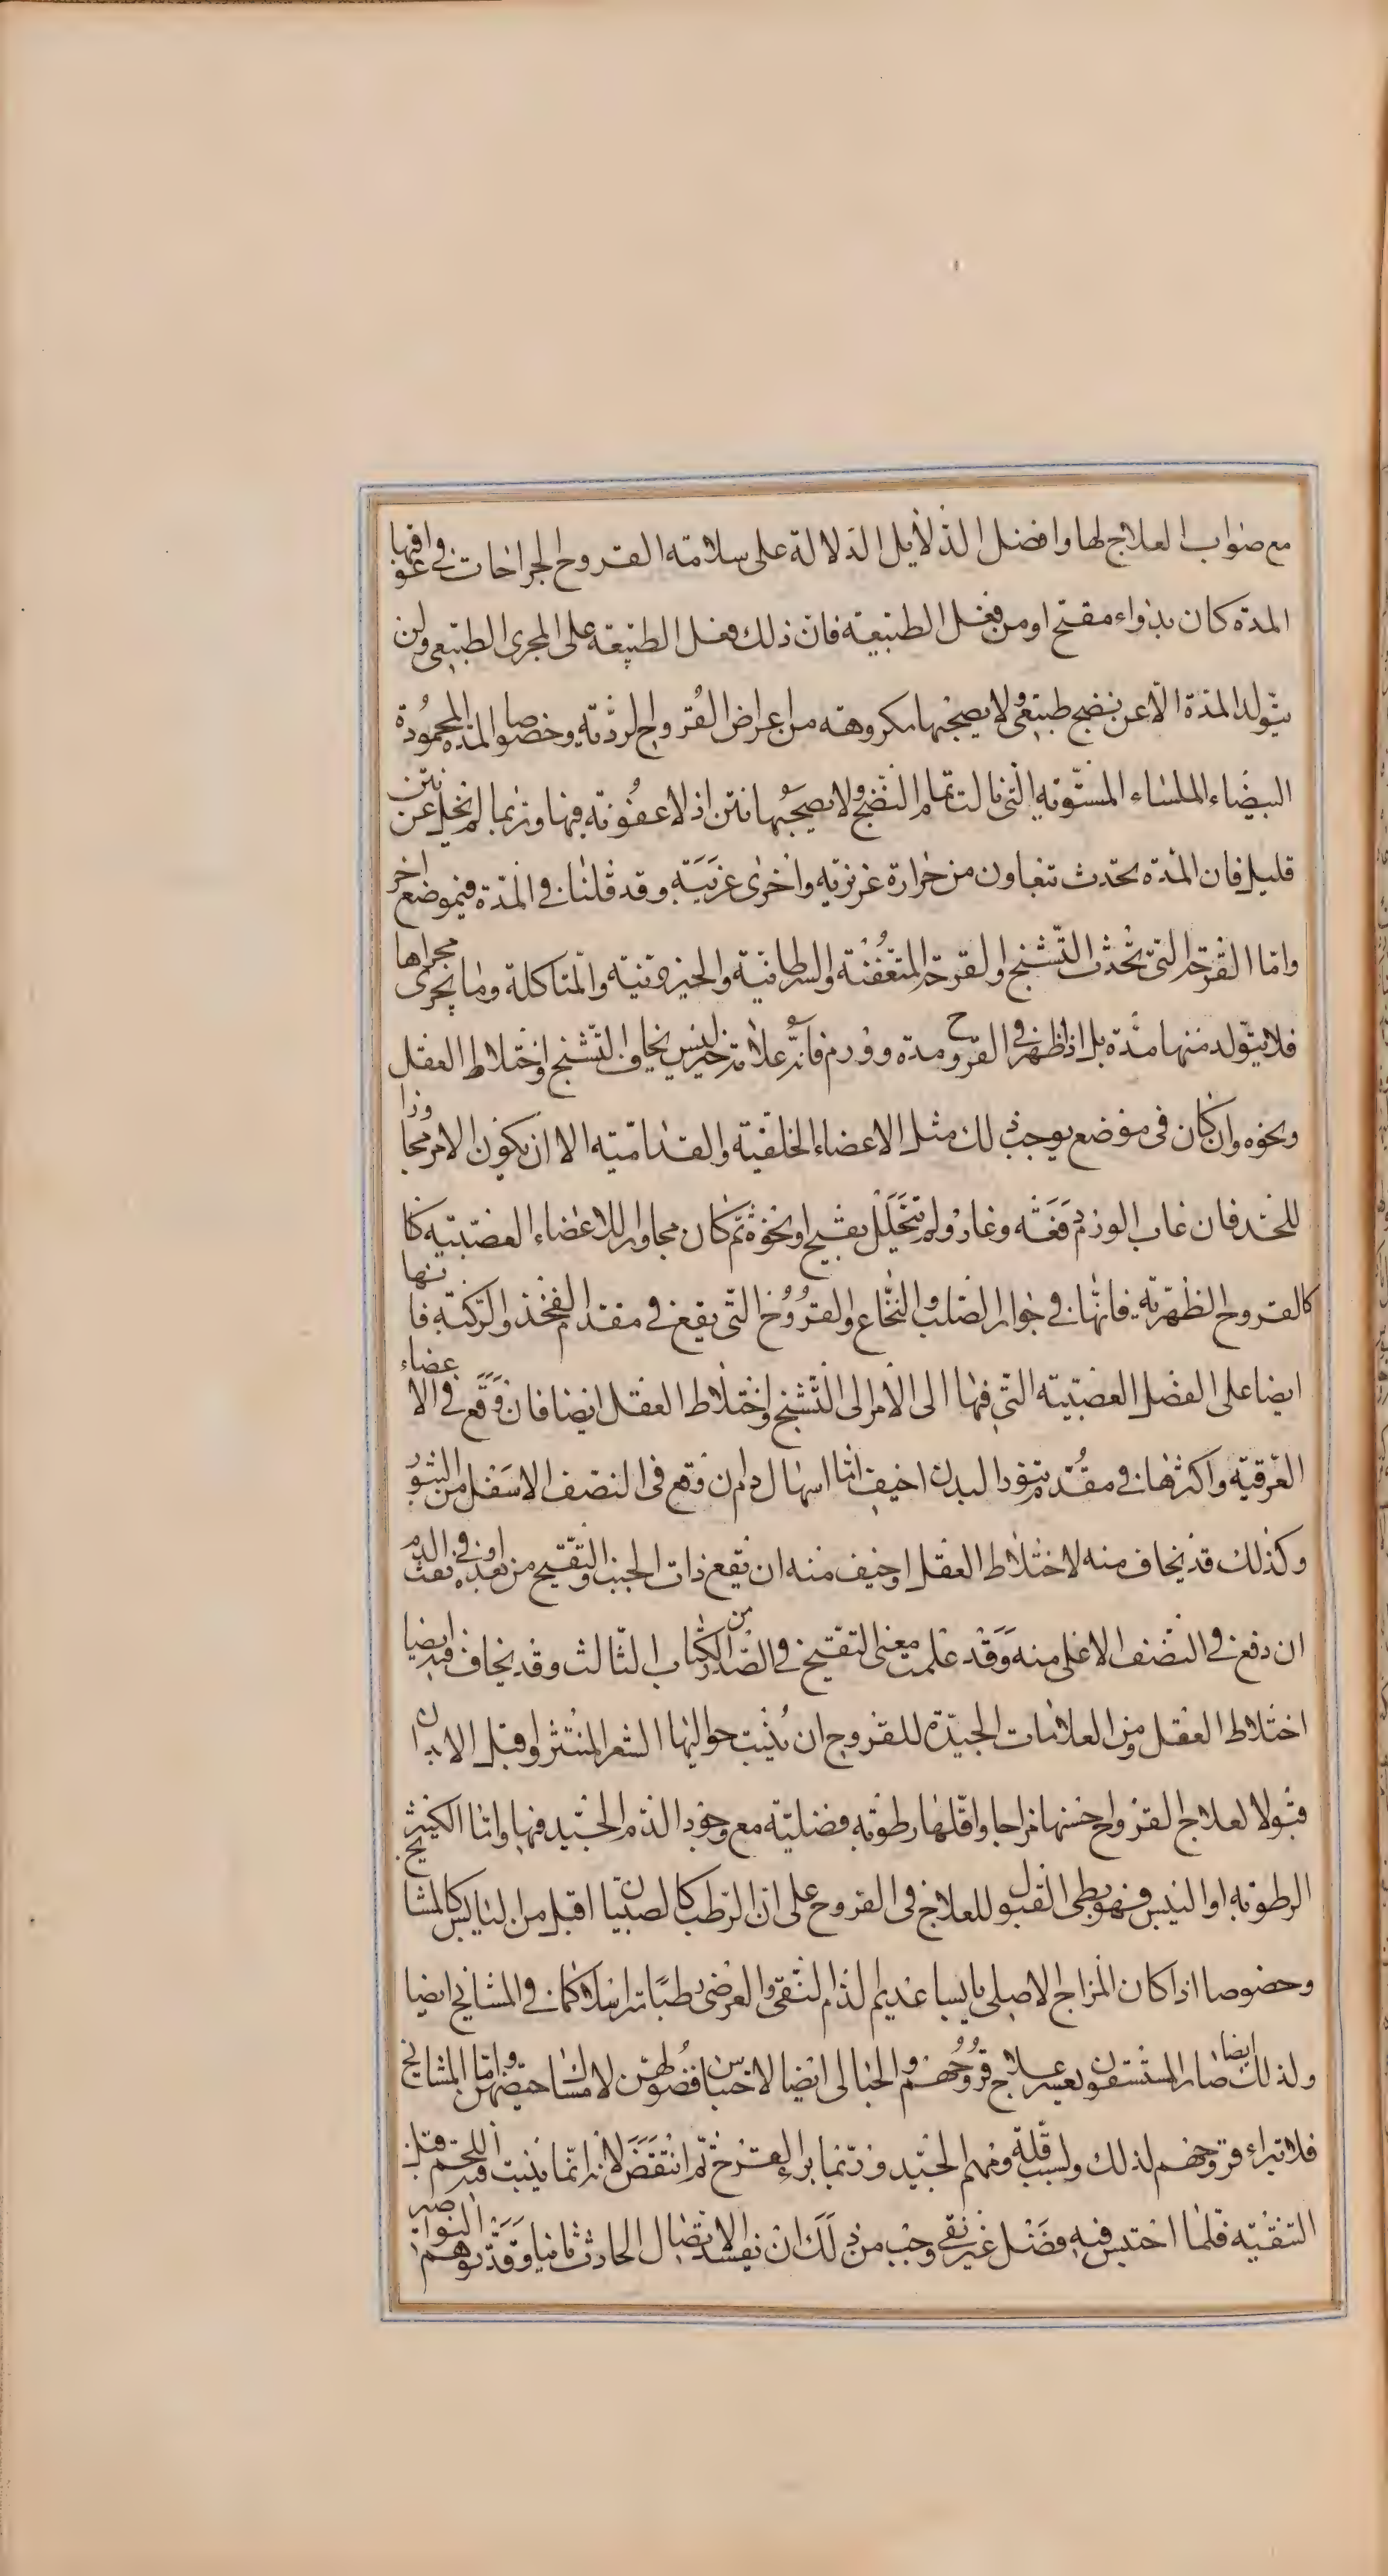 مع صواب العلاج لها وافضل الدلايل الدلالة على سلامته القروح الجراحات في عواقبها
المدة كان بدواء مقيح او من فعل الطبيعة فان ذلك فعل الطبيعة على المجرى الطبيعي ولن
يتولد المدة الا عن نضج طبيعي ولا يصحبها مكروهة من اعراض القروح الردئة وخصوصا المده المحمودة
البيضاء الملساء المستوية التي نالت تمام النضج ولا يصحبها نتن اذ لا عفونة فيها وربما لم يخل عن نتن
قليل فان المدة يحدث بتعاون من حرارة غريزية واخرى غريبة وقد قلنا في المدة في موضع اخر
واما القرحة التي تحدث التشنج والقرحة المتعفنة والسرطانية والخيزونية والمتاكلة وما يجرى مجراها
فلا يتولد منها مدة بل اذا ظهر في القروح مدة وورم فانه علامة خير ليس يخاف التشنج واختلاط العقل
ونحوه وان كان في موضع يوجب ذلك مثل الاعضاء الخلفية والقدامية الا ان يكون الامر مجاوزا
للحد فان غاب الورم دفعة وغار ولم يتحلل بقيح او نحوه ثم كان مجاور للاعضاء العصبية كا
كالقروح الظهرية فانها في جوار الصلب والنخاع والقروح التي يقع في مقدم الفخذ والركبة فانها
ايضا على العضل العصبية التي فيها الى الامر الى التشنج واختلاط العقل ايضا فان وقع في الاعضاء
العرقية واكثرها في مقدم تنور البدن اخيف اما اسهال دم ان وقع في النصف الاسفل من التنور
وكذلك قد يخاف منه لاختلاط العقل او خيف منه ان يقع ذات الجنب والتقيح من بعده او في نفث الدم
ان دفع في النصف الاعلى منه وقد علمت معنى التقيح في الصدر من الكتاب الثالث وقد يخاف فيه ايضا
اختلاط العقل ومن العلامات الجيدة للقروح ان ينبت حواليها الشعر المنتثر واقبل الابدان
قبولا لعلاج القروح احسنها مزاجا واقلها رطوبة فضلية مع وجود الدم الجيد فيها واما الكثير
الرطوبة او اليبس فهو بطي القبول للعلاج في القروح على ان الرطب كالصبيان اقبل من اليابس كالمشايخ
وخصوصا اذا كان المزاج الاصلي يابسا عديم الدم النقي والعرضي رطبا مترهلا كما في المشايخ ايضا
ولذلك ايضا صار المستسقون يعسر علاج قروحهم والحبالى ايضا لاحتباس فضولهن لامساك حيضهن واما المشايخ
فلا تبراء قروحهم لذلك ولسبب قلة ومهم الجيد وربما براء القرح ثم انتقض لانه انما ينبت فيه اللحم قبل
التنقية فلما احتبس فيه فضل غير نقي وجب من ذلك ان يفسد الاتصال الحادث ثانيا وقد توهم النواصر